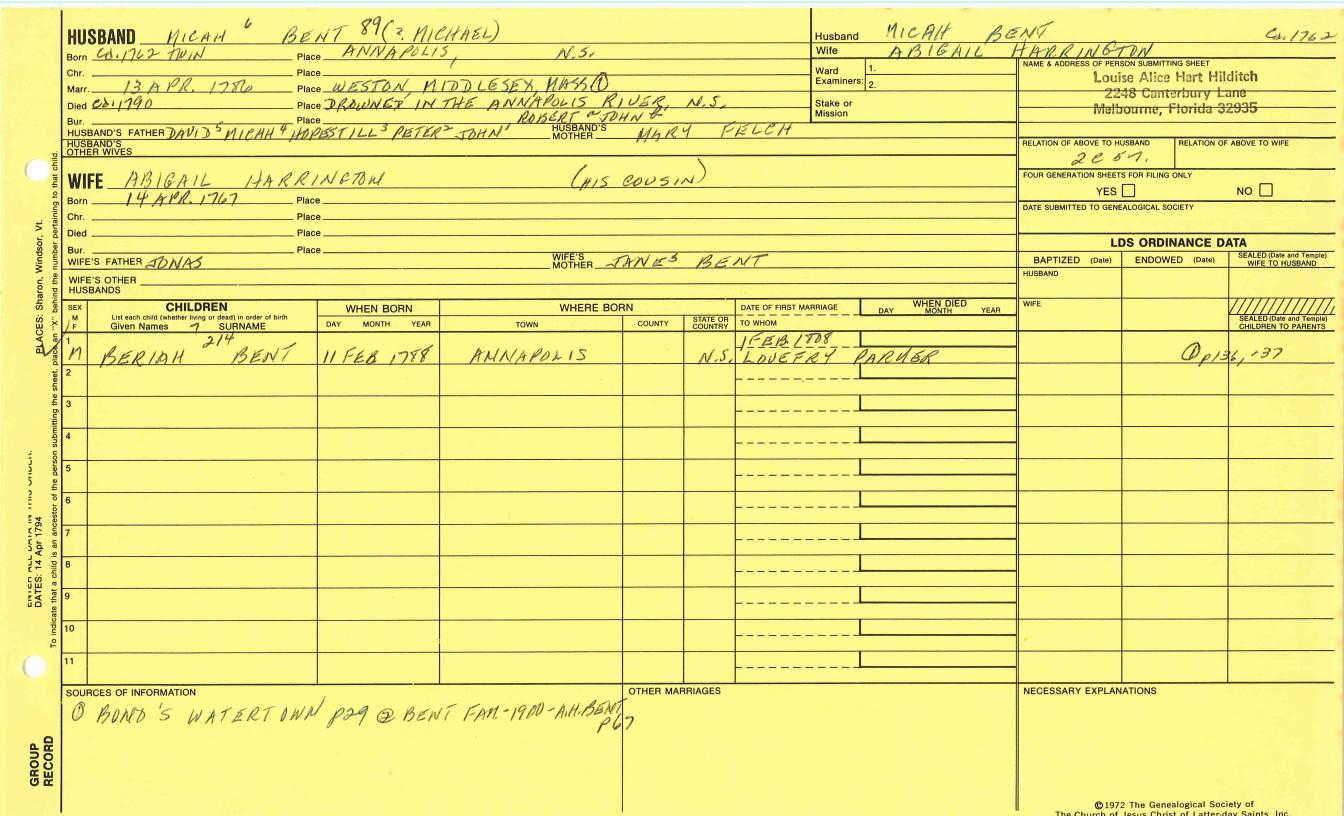 HUSBAND MICAH 6 BENT 89 (2. MICHAEL)
Born Ca. 1762 TWIN Place ANNAPOLIS, N.S.
Chr. Place
Marr. 13 APR. 1786 Place WESTON, MIDDLESEX, MASS ①
Died Ca. 1790 Place DROWNED IN THE ANNAPOLIS RIVER, N.S.
Bur. Place ROBERT JOHN
HUSBAND'S FATHER DAVID 5 MICAH 4 HOPESTILL 3 PETER 2 JOHN 1 HUSBAND'S MOTHER MARY FELCH
HUSBAND'S OTHER WIVES
WIFE ABIGAIL HARRINGTON (HIS COUSIN)
Born 14 APR. 1767 Place
Chr. Place
Died Place
Bur. Place
WIFE'S FATHER JONAS WIFE'S MOTHER JANE 5 BENT
WIFE'S OTHER HUSBANDS
Husband MICAH BENT Ca. 1762
Wife ABIGAIL HARRINGTON
Ward Examiners: 1. 2.
Stake or Mission
NAME & ADDRESS OF PERSON SUBMITTING SHEET
Louise Alice Hart Hilditch
2248 Canterbury Lane
Melbourne, Florida 32935
RELATION OF ABOVE TO HUSBAND RELATION OF ABOVE TO WIFE
2C 5r.
FOUR GENERATION SHEETS FOR FILING ONLY
YES NO
DATE SUBMITTED TO GENEALOGICAL SOCIETY
LDS ORDINANCE DATA
BAPTIZED (Date) ENDOWED (Date) SEALED (Date and Temple) WIFE TO HUSBAND
HUSBAND
WIFE
SEALED (Date and Temple) CHILDREN TO PARENTS
SEX M / F CHILDREN WHEN BORN WHERE BORN DATE OF FIRST MARRIAGE WHEN DIED
List each child (whether living or dead) in order of birth
Given Names 7 SURNAME DAY MONTH YEAR TOWN COUNTY STATE OR COUNTRY TO WHOM DAY MONTH YEAR
1 214 1 FEB 1808
M BERIAH BENT 11 FEB 1788 ANNAPOLIS N.S. PARKER ① p136,-37
2
3
4
5
6
7
8
9
10
11
SOURCES OF INFORMATION OTHER MARRIAGES NECESSARY EXPLANATIONS
① BOND'S WATERTOWN p29 ② BENT FAM-1900-A.H.BENT
p67
PLACES: Sharon, Windsor, Vt.
ENTER ALL DATA IN THIS ORDER:
DATES: 14 Apr 1794
To indicate that a child is an ancestor of the person submitting the sheet, place an "X" behind the number pertaining to that child.
GROUP RECORD
©1972 The Genealogical Society of
The Church of Jesus Christ of Latter-day Saints, Inc.